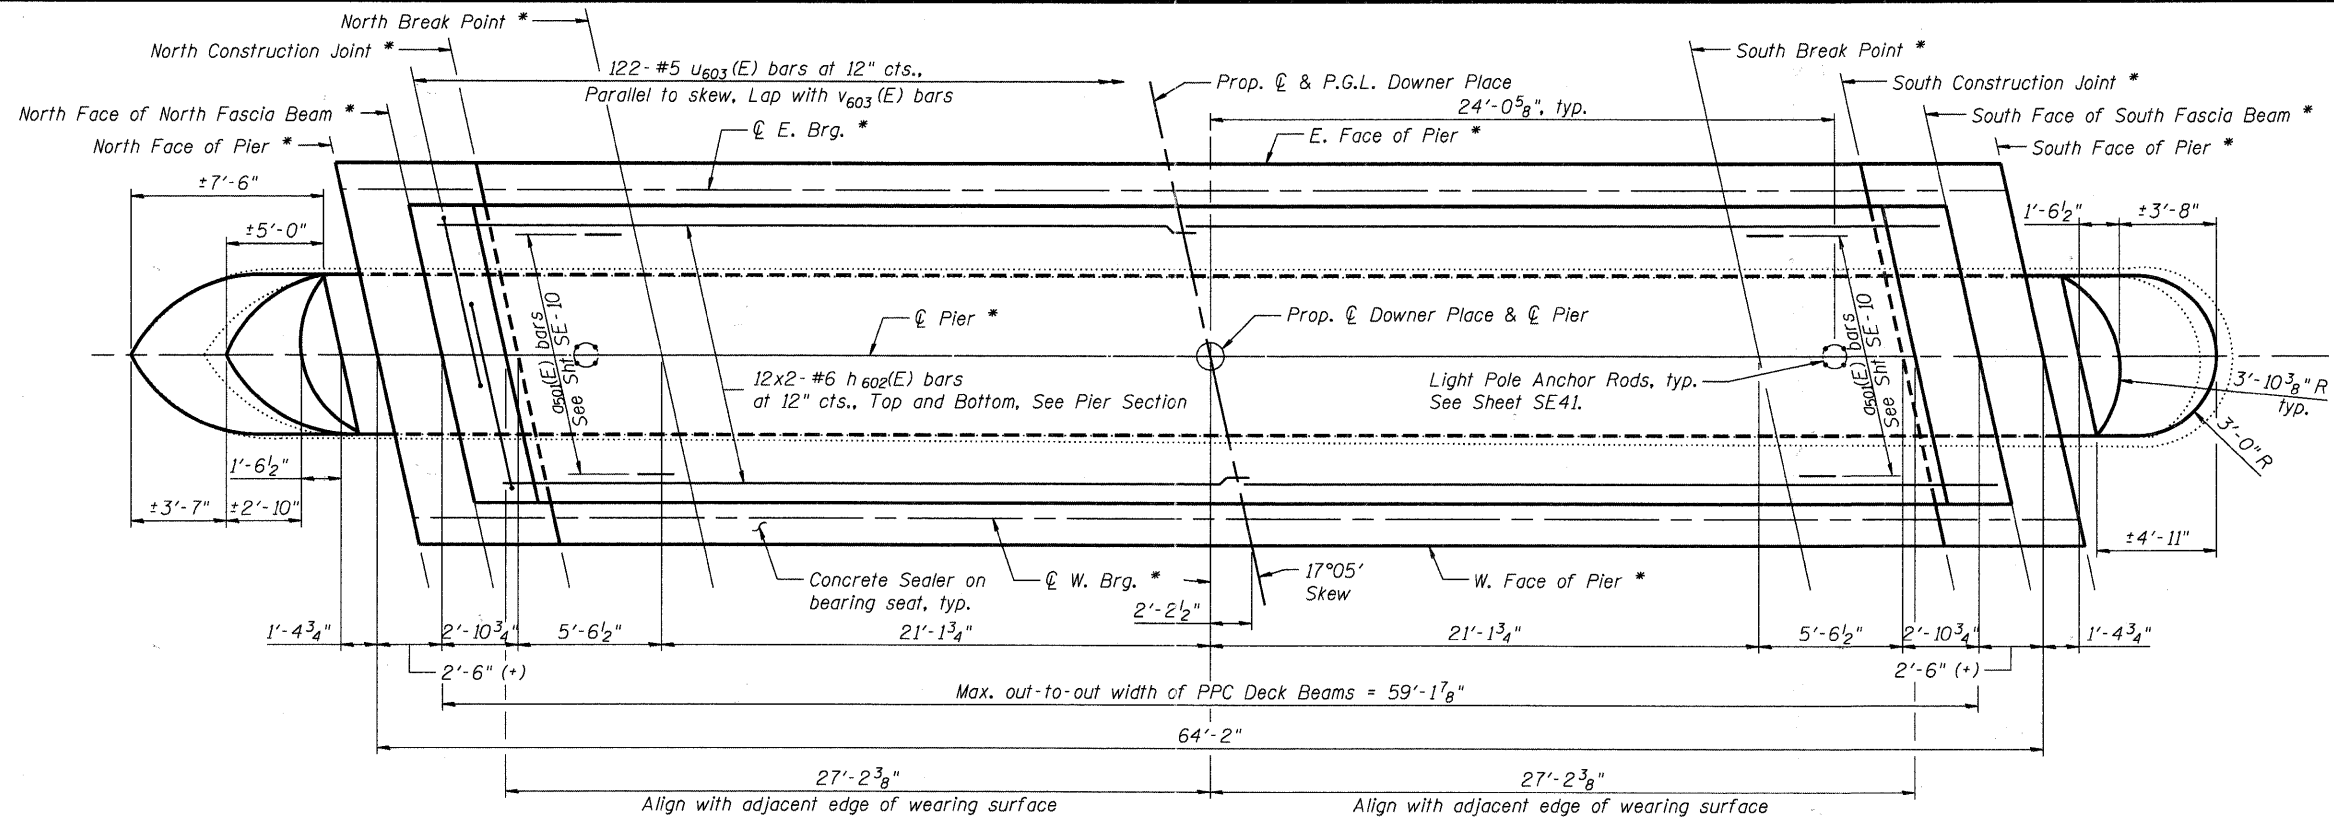 North Break Point *
North Construction Joint *
122- #5 u603(E) bars at 12" cts.,
Parallel to skew, Lap with v603 (E) bars
North Face of North Fascia Beam *
North Face of Pier *
℄ E. Brg. *
Prop. ℄ & P.G.L. Downer Place
24'-0⅝", typ.
E. Face of Pier *
South Break Point *
South Construction Joint *
South Face of South Fascia Beam *
South Face of Pier *
±7'-6"
±5'-0"
1'-6½"
±3'-8"
a501(E) bars
See Sht. SE-10
℄ Pier *
Prop. ℄ Downer Place & ℄ Pier
12x2- #6 h602(E) bars
at 12" cts., Top and Bottom, See Pier Section
Light Pole Anchor Rods, typ.
See Sheet SE41.
a501(E) bars
See Sht SE-10
3'-10⅜" R
typ.
3'-0" R
1'-6½"
±3'-7"
±2'-10"
±4'-11"
Concrete Sealer on
bearing seat, typ.
℄ W. Brg. *
17°05'
Skew
W. Face of Pier *
2'-2½"
1'-4¾"
2'-10¾"
5'-6½"
21'-1¾"
21'-1¾"
5'-6½"
2'-10¾"
1'-4¾"
2'-6" (+)
2'-6" (+)
Max. out-to-out width of PPC Deck Beams = 59'-1⅞"
64'-2"
27'-2⅜"
Align with adjacent edge of wearing surface
27'-2⅜"
Align with adjacent edge of wearing surface